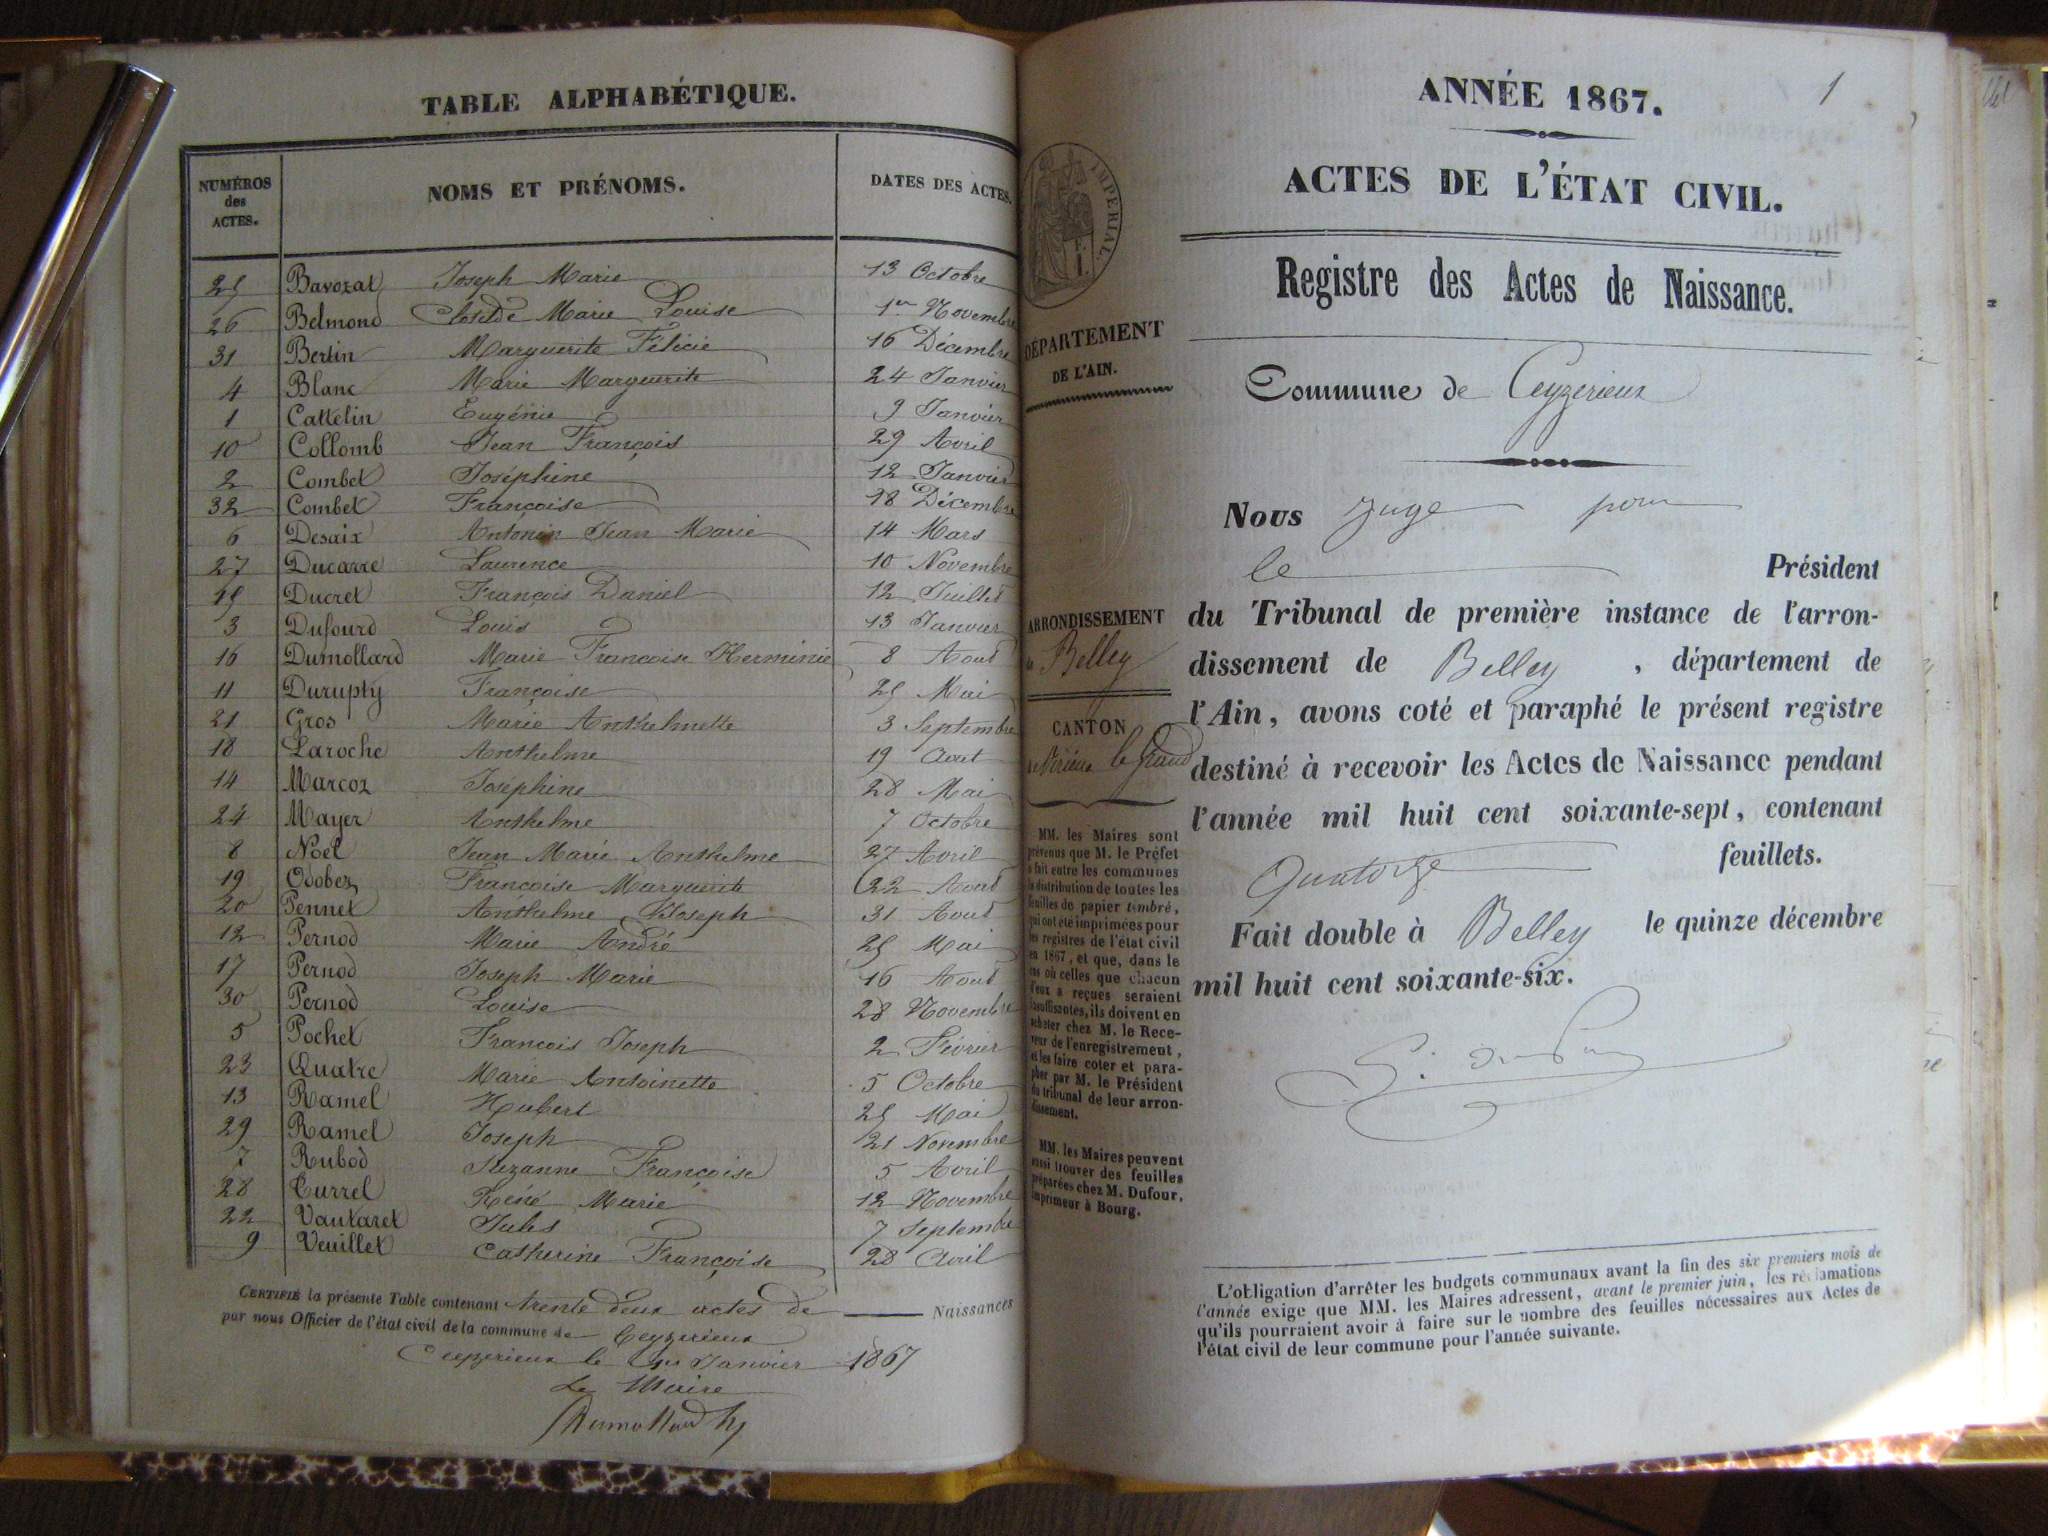 TABLE ALPHABÉTIQUE.
NUMÉROS des ACTES.
NOMS ET PRÉNOMS.
DATES DES ACTES.
25 Bavozat Joseph Marie 13 Octobre
26 Belmond Clotilde Marie Louise 1er Novembre
31 Bertin Marguerite Félicie 16 Décembre
4 Blanc Marie Marguerite 24 Janvier
1 Cattelin Eugénie 9 Janvier
10 Collomb Jean François 29 Avril
2 Combet Joséphine 12 Janvier
32 Combet Françoise 18 Décembre
6 Desaix Antonin Jean Marie 14 Mars
27 Ducarre Laurence 10 Novembre
15 Ducret François Daniel 12 Juillet
3 Dufourd Louis 13 Janvier
16 Dumollard Marie Francoise Herminie 8 Aout
11 Durupty Françoise 25 Mai
21 Gros Marie Anthelmette 3 Septembre
18 Laroche Anthelme 19 Aout
14 Marcoz Joséphine 28 Mai
24 Mayer Anthelme 7 Octobre
8 Noël Jean Marie Anthelme 27 Avril
19 Odobez Francoise Marguerite 22 Aout
20 Pennet Anthelme Joseph 31 Aout
12 Pernod Marie André 25 Mai
17 Pernod Joseph Marie 16 Aout
30 Pernod Louise 28 Novembre
5 Pochet Francois Joseph 2 Février
23 Quatre Marie Antoinette 5 Octobre
13 Ramel Hubert 25 Mai
29 Ramel Joseph 21 Novembre
7 Rubod Suzanne Françoise 5 Avril
28 Turrel Réné Marie 12 Novembre
22 Vautaret Jules 7 Septembre
9 Veuillet Catherine Françoise 28 Avril
CERTIFIÉ la présente Table contenant trente deux actes de Naissances
par nous Officier de l'état civil de la commune de Ceyzerieux
Ceyzerieux le 1er Janvier 1867
Le Maire
Dumollard
IMPERIAL.
DÉPARTEMENT
DE L'AIN.
ARRONDISSEMENT
de Belley
CANTON
de Virieu le Grand
MM. les Maires sont
prévenus que M. le Préfet
a fait entre les communes
la distribution de toutes les
feuilles de papier timbré,
qui ont été imprimées pour
les registres de l'état civil
en 1867, et que, dans le
cas où celles que chacun
d'eux a reçues seraient
insuffisantes, ils doivent en
acheter chez M. le Rece-
veur de l'enregistrement,
et les faire coter et para-
pher par M. le Président
du tribunal de leur arron-
dissement.
MM. les Maires peuvent
aussi trouver des feuilles
préparées chez M. Dufour,
imprimeur à Bourg.
1
ANNÉE 1867.
ACTES DE L'ÉTAT CIVIL.
Registre des Actes de Naissance.
Commune de Ceyzerieux
Nous Juge pour
le Président
du Tribunal de première instance de l'arron-
dissement de Belley, département de
l'Ain, avons coté et paraphé le présent registre
destiné à recevoir les Actes de Naissance pendant
l'année mil huit cent soixante-sept, contenant
Quatorze feuillets.
Fait double à Belley le quinze décembre
mil huit cent soixante-six.
L'obligation d'arrêter les budgets communaux avant la fin des six premiers mois de
l'année exige que MM. les Maires adressent, avant le premier juin, les réclamations
qu'ils pourraient avoir à faire sur le nombre des feuilles nécessaires aux Actes de
l'état civil de leur commune pour l'année suivante.